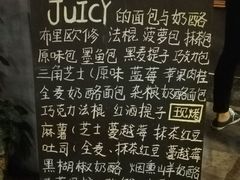 JUICY 的面包与奶酪
布里欧修 法棍 菠萝包 抹茶包
原味包 墨鱼包 黑麦提子 巧克力包
三角芝士（原味 蓝莓 苹果肉桂
全麦奶酪面包 朵椒奶酪面包
巧克力法棍 红酒提子 现烤
麻薯（芝士 蔓越莓 抹茶红豆
吐司（全麦、抹茶红豆 蔓越莓
黑胡椒奶酪 烟熏 奶酪